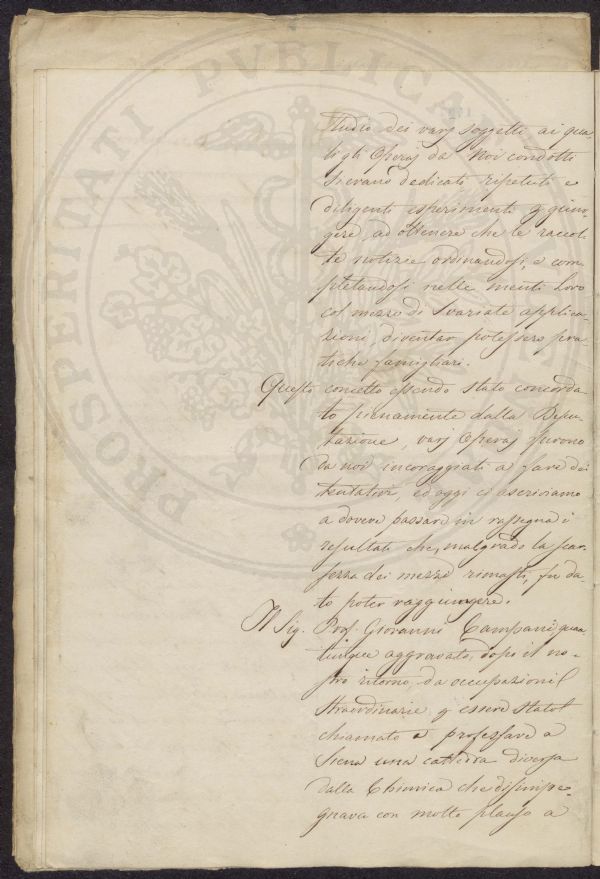 PROSPERITATI PVBLICAE
studio dei varj soggetti ai qua-
li gli Operaj da Noi condotti
s'erano dedicati ripetuti e
diligenti esperimenti p giun-
gere, ad ottenere che le raccol-
te notizie ordinandosi, e com
pletandosi nelle menti loro
col mezzo di svariate applica-
zioni, diventar potessero pra
tiche famigliari.
Questo concetto essendo stato concorda
to pienamente dalla Depu-
tazione, varj Operaj furono
da noi incoraggiati a fare dei
tentativi, ed oggi ci ascriviamo
a dovere passare in rassegna i
resultati che, malgrado la scar-
sezza dei mezzi rimasti, fu da-
to poter raggiungere.
Il Sig. Prof. Giovanni Campani quan
tunque aggravato, dopo il no-
stro ritorno, da occupazioni
straordinarie p essere stato
chiamato a professare a
Siena una cattedra diversa
dalla Chimica che disimpe-
gnava con molto plauso a